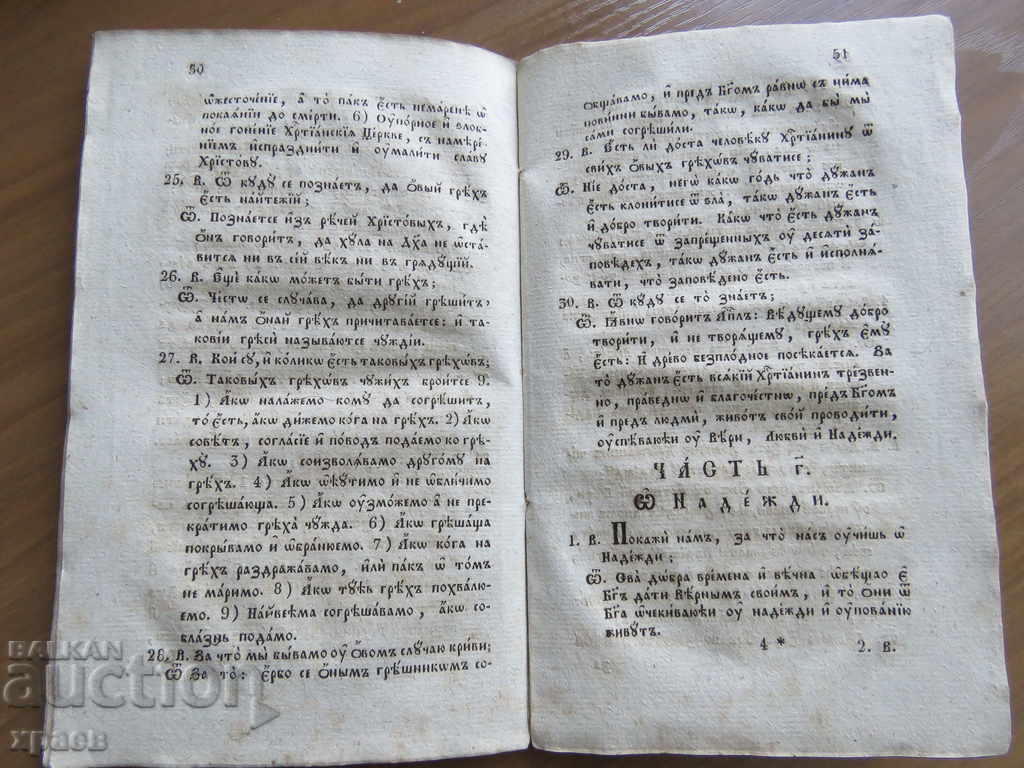 50
ѡ҆жесточе́нїе, а҆ то̀ па́къ є҆́сть немаре́нѣ ѿ
покаѧ́нїи до сме́рти. 6) Оу҆по́рное и҆ ѕло́б-
ное гоне́нїе Хр҇тїа́нскїѧ Це́ркве, съ намѣ́ре-
нїемъ и҆спраздни́ти и҆ оу҆мали́ти сла́ву
Хрїсто́ву.
25. В. Ѿ ку́ду се позна́етъ, да о҆́вый грѣ́хъ
є҆́сть на́йтежїй;
Ѿ. Позна́етсе и҆зъ рѣ́чей Хрїсто́выхъ, гдѣ̀
о҆́нъ говори́тъ, да хула̀ на Дх҃а не ѡ҆ста́-
витсѧ ни въ се́й вѣ́къ ни въ грѧду́щїй.
26. В. Є҆щѐ ка́кѡ мо́жетъ бы́ти грѣ́хъ;
Ѿ. Чи́стѡ се слꙋча́ва, да дрꙋгі́й грѣши́тъ,
а҆ на́мъ о҆́най грѣ́хъ причита́ваетсе: и҆ та-
ко́вїи грѣсѝ называ́ютсе чужді́и.
27. В. Ко́и су, и҆ ко́ликѡ є҆́сть таковы́хъ грѣхѡ́въ;
Ѿ. Таковы́хъ грѣхѡ́въ чужи́хъ брои́тсе 9.
1) А҆́кѡ нала́жемо кому да согрѣши́тъ,
то̀ є҆́сть, а҆́кѡ ди́жемо кога на грѣ́хъ. 2) А҆́кѡ
совѣ́тъ, согла́сїе и҆ по́водъ пода́емо ко грѣ-
хꙋ́. 3) А҆́кѡ соизволѧ́вамо дрꙋго́мꙋ на
грѣ́хъ. 4) А҆́кѡ ѡ҆ути́мо и҆ не ѡ҆бличи́мо
согрѣша́юща. 5) А҆́кѡ оу҆змо́жемо а҆ не пре-
кра́тимо грѣха̀ чу́жда. 6) А҆́кѡ грѣша́ща
покрыва́мо и҆ ѡ҆браню́емо. 7) А҆́кѡ кога на
грѣ́хъ раздража́вамо, и҆лѝ па́къ ѡ҆ то́мъ
не ма́римо. 8) А҆́кѡ ту́ѣь грѣ́хъ похва́лю-
емо. 9) Найве́ема согрѣша́вамо, а҆́кѡ со-
бла́знь пода́мо.
28. В. За что̀ мы̀ быва́мо оу҆ о҆́вомъ слꙋча́ю кри́ви;
Ѿ За то̀: є҆́рбо се о҆́нымъ грѣ́шникомъ со-
51
ѻбща́вамо, и҆ пре́дъ Бг҃омъ ра́внѡ съ ни́ма
пови́нни быва́мо, та́кѡ, ка́кѡ да бы̀ мы̀
са́ми согрѣши́ли.
29. В. Є҆́сть ли до́ста человѣ́кꙋ Хр҇тїа́нинꙋ ѿ
свои́хъ о҆́выхъ грѣхѡ́въ чу́ватисе;
Ѿ. Ні́е до́ста, не́гѡ ка́кѡ го́дь что̀ дꙋ́жанъ
є҆́сть клони́тисе ѿ ѕла̀, та́кѡ дꙋ́жанъ є҆́сть
и҆ до́бро твори́ти. Ка́кѡ что̀ є҆́сть дꙋ́жанъ
чу́ватисе ѿ запреще́нныхъ оу҆ десѧтѝ за́-
повѣдехъ, та́кѡ дꙋ́жанъ є҆́сть и҆ и҆сполнѧ́-
вати, что̀ заповѣ́дено є҆́сть.
30. В. Ѿ ку́ду се то̀ зна́етъ;
Ѿ. Ꙗ҆́внѡ говори́тъ А҆п҇лъ: Вѣ́дꙋщемꙋ добро̀
твори́ти, и҆ не творѧ́щемꙋ, грѣ́хъ є҆мꙋ̀
є҆́сть: И҆ дре́во безпло́дное посѣка́етсѧ. За
то̀ дꙋ́жанъ є҆́сть всѧ́кїй Хр҇тїа́нинъ тре́звен-
но, пра́веднѡ и҆ благоче́стнѡ, пре́дъ Бг҃омъ
и҆ пре́дъ лю́дми, живо́тъ сво́й проводи́ти,
оу҆спѣва́юћи оу҆ Вѣ́ри, Любви̂ и҆ Наде́жди.
ЧА́СТЬ г҃.
Ѿ НАДЕ́ЖДИ.
1. В. Покажѝ на́мъ, за что̀ на́съ оу҆чи́шь ѿ
Наде́жди;
Ѿ. Ѻва̀ дѡ́бра вре́мена и҆ вѣ́чна ѡ҆бѣща́о є҆̀
Бг҃ъ да́ти Вѣ́рнымъ свои́мъ, и҆ то̀ о҆ни
Бг҃а ѡ҆чекива́юћи оу҆ наде́жди и҆ оу҆пова́нїю
живу́тъ.
4 * 2. В.
BALKAN
auction
храев